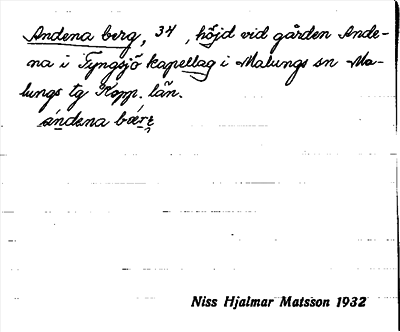 Andena berg, 34, höjd vid gården Ande-
na i Tyngsjö kapellag i Malungs sn Ma-
lungs tg Kopp. län.
ándena
Niss Hjalmar Matsson 1932